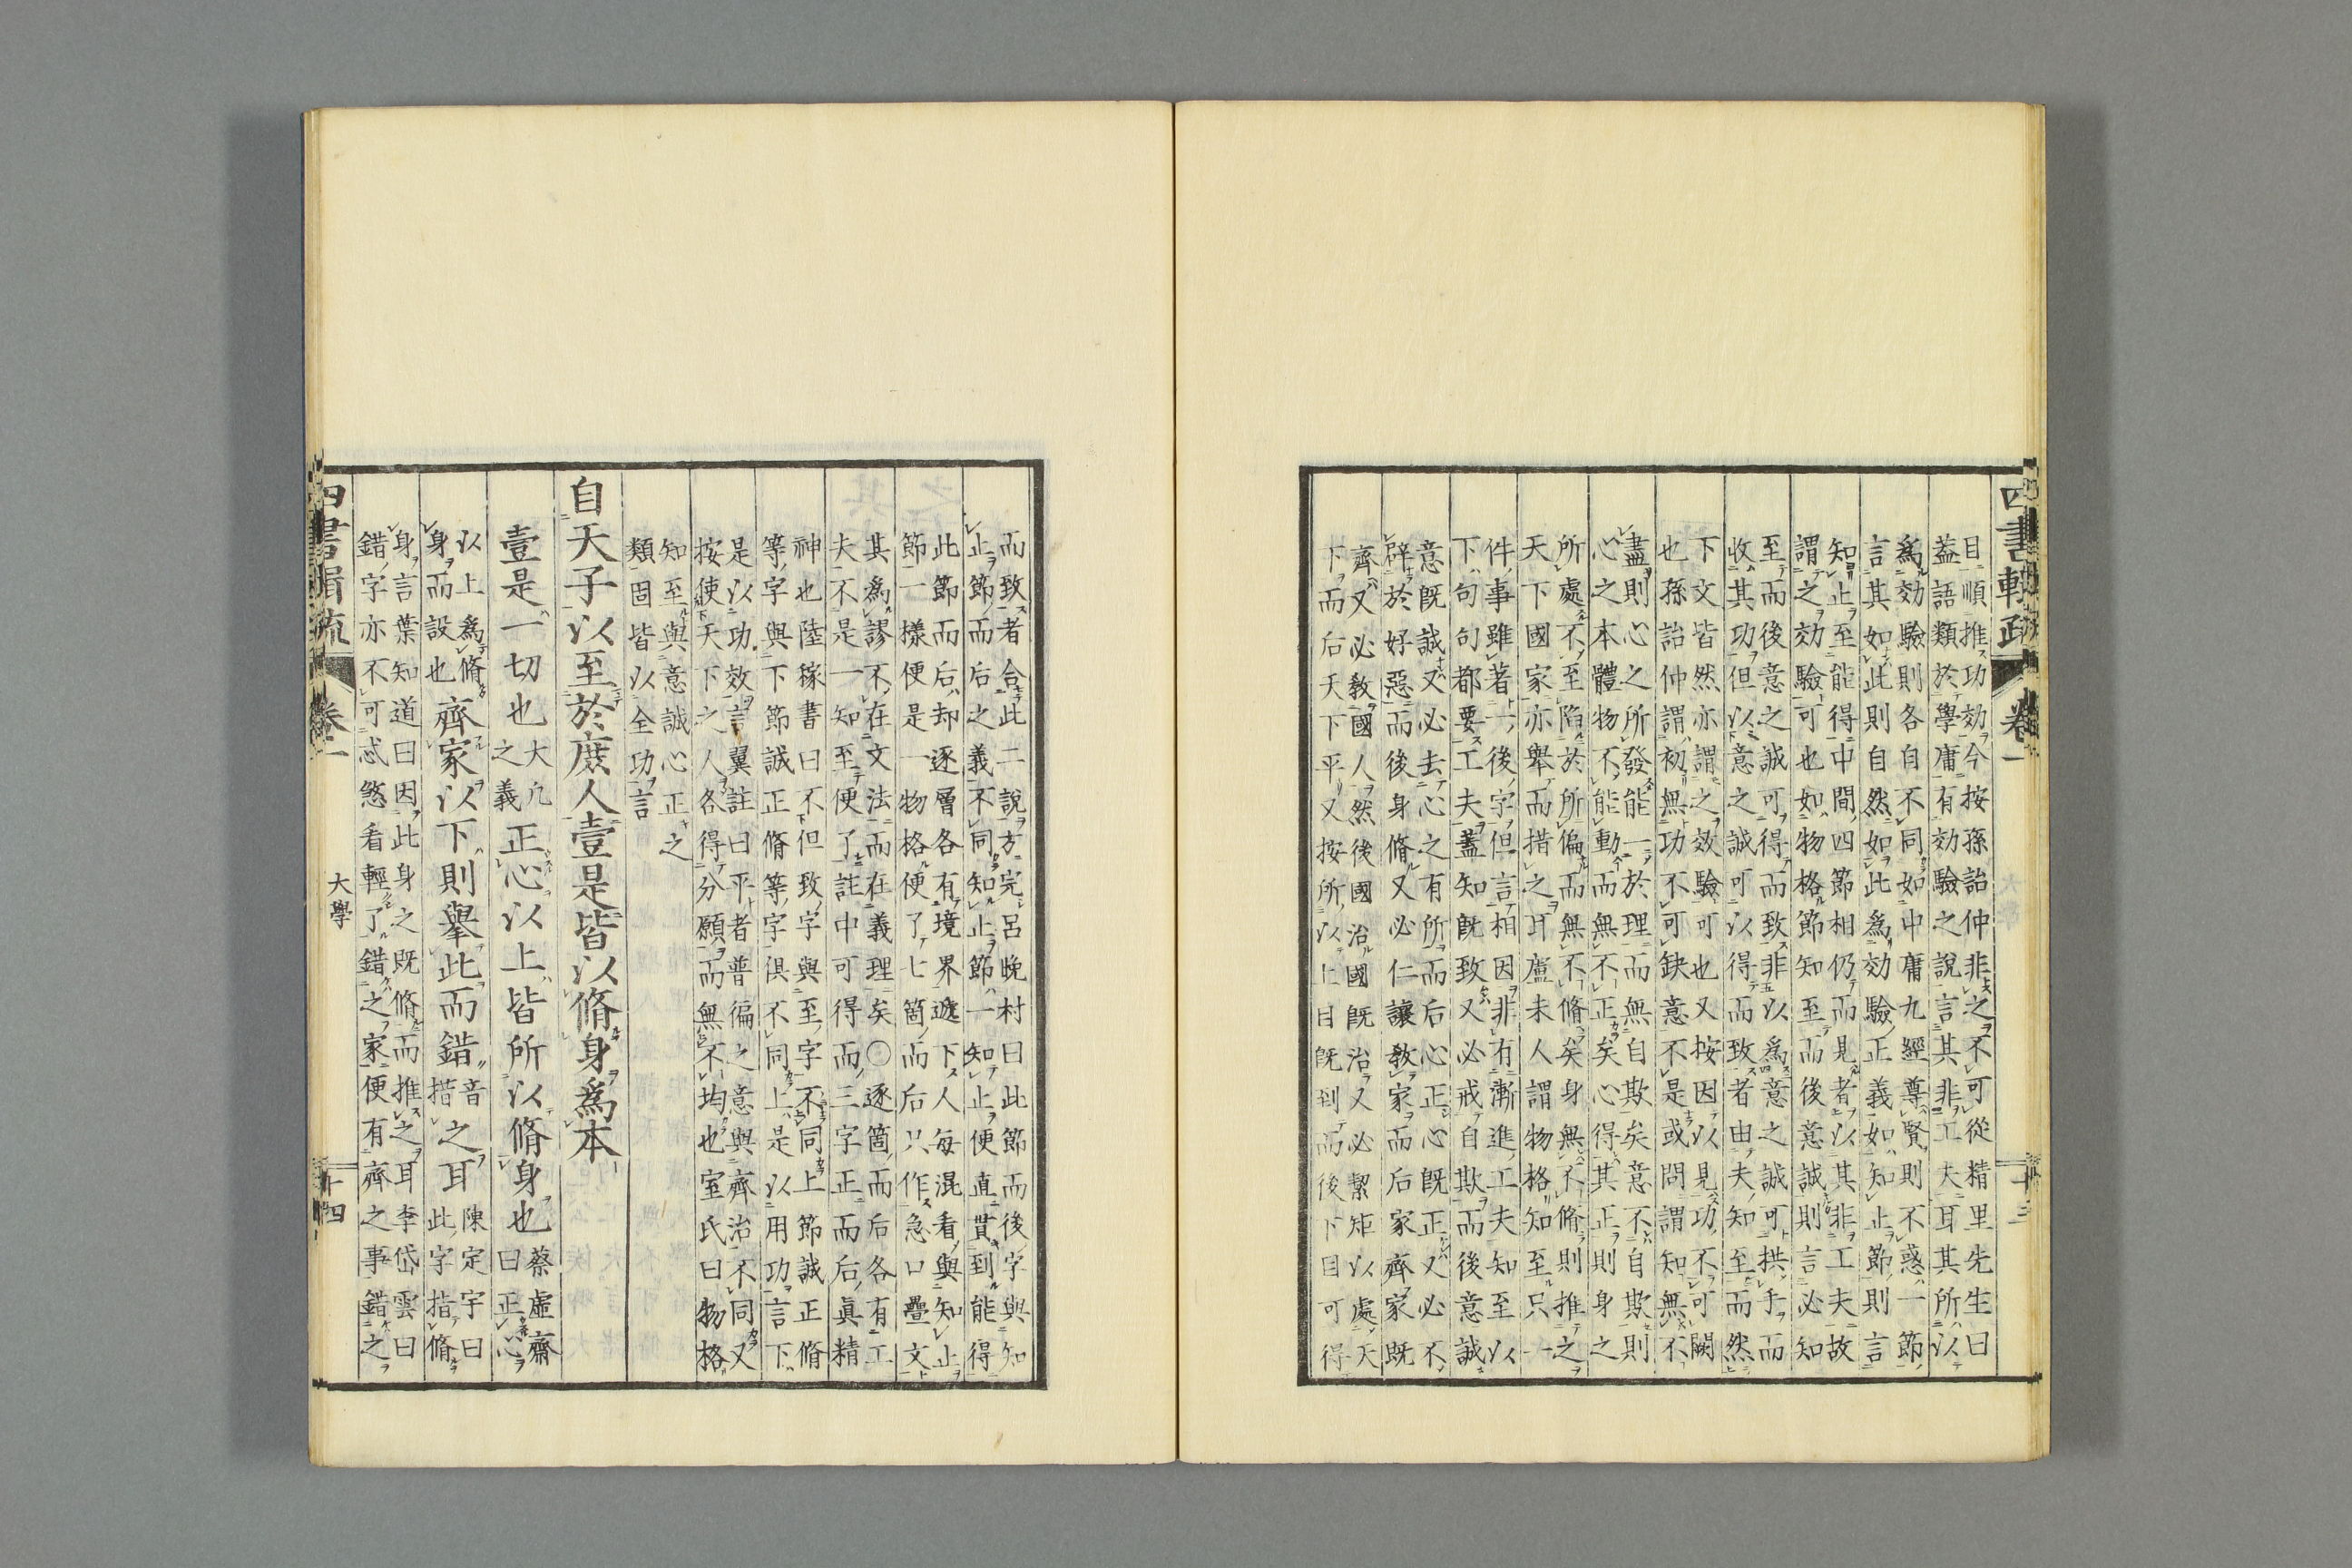 四書輯疏 卷一
目順推功効今按孫詒仲非之不可從精里先生曰
蓋語類於學庸有効驗之說言其非工夫耳其所以
爲効驗則各自不同如中庸九經尊賢則不惑一節
言其如此則自然如此爲効驗正義如知止節則言
知止至能得中間四節相仍而見者以其非工夫故
謂之効驗可也如物格節知至而後意誠則言必知
至而後意之誠可得而致非以爲意之誠可拱手而
收其功但以意之誠可以得而致者由夫知至而然
下文皆然亦謂之效驗可也又按因以見功不可闕
也孫詒仲謂初無功不可缺意不是或問謂知無不
盡則心之所發能一於理而無自欺矣意不自欺則
心之本體物不能動而無不正矣心得其正則身之
所處不至陷於所偏而無不脩矣身無不脩則推之
天下國家亦舉而措之耳盧未人謂物格知至只一
件事雖著一後字但言相因非有漸進工夫知至以
下句句都要工夫蓋知既致又必戒自欺而後意誠
意既誠又必去心之有所而后心正心既正又必不
辟於好惡而後身脩又必仁讓敎家而后家齊家既
齊又必敎國人然後國治國既治又必絜矩以處天
下而后天下平又按所以上目既到而後下目可得
而致者合此二說方完呂晚村曰此節而後字與知
止節而后之義不同知止節一知止便直貫到能得
此節而后却逐層各有境界遞下人每混看與知止
節一樣便是一物格便了七箇而后只作急口疊文
其爲謬不在文法而在義理矣〇逐箇而后各有工
夫不是一知至便了註中可得而三字正而后眞精
神也陸稼書曰不但致字與至字不同上節誠正脩
等字與下節誠正脩等字俱不同上是以用功言下
是以功效言翼註曰平者普徧之意與齊治不同又
按使天下之人各得分願而無不均也室氏曰物格
知至與意誠心正之
類固皆以全功言
自天子以至於庶人壹是皆以脩身爲本
壹是一切也大凡之義正心以上皆所以脩身也蔡虛齋曰正心
以上爲脩身而設也齊家以下則舉此而錯音措之耳陳定宇曰此字指脩
身言葉知道曰因此身之既脩而推之耳李岱雲曰
錯字亦不可忒煞看輕了錯之家便有齊之事錯之
四書輯疏 卷一 大學 十四